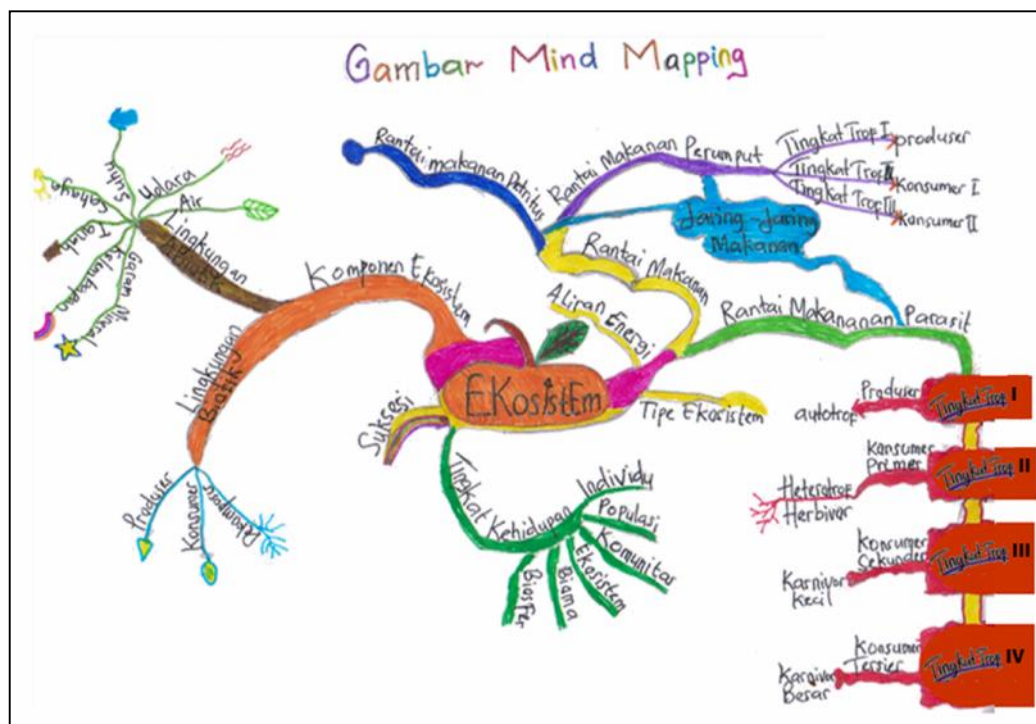 Gambar Mind Mapping
Suhu
Udara
Cahaya
Air
Tanah
Kelembapan
Garam Mineral
Lingkungan
Abiotik
Komponen Ekosistem
Lingkungan
Biotik
Produser
Konsumer
EKosistEm
Suksesi
Tingkat Kehidupan
Individu
Populasi
Komunitas
Ekosistem
Bioma
Biosfer
Tipe Ekosistem
Aliran Energi
Rantai Makanan
Rantai makanan Detritus
Rantai Makanan Perumput
Tingkat Trop I
produser
Tingkat Trop II
Konsumer I
Tingkat Trop III
Konsumer II
Jaring-Jaring
Makanan
Rantai Makananan Parasit
Tingkat Trop I
Produser
autotrof
Tingkat Trop II
Konsumer
Primer
Heterotrof
Herbivor
Tingkat Trop III
Konsumer
Sekunder
Karnivor
Kecil
Tingkat Trop IV
Konsumer
Tersier
Karnivor
Besar